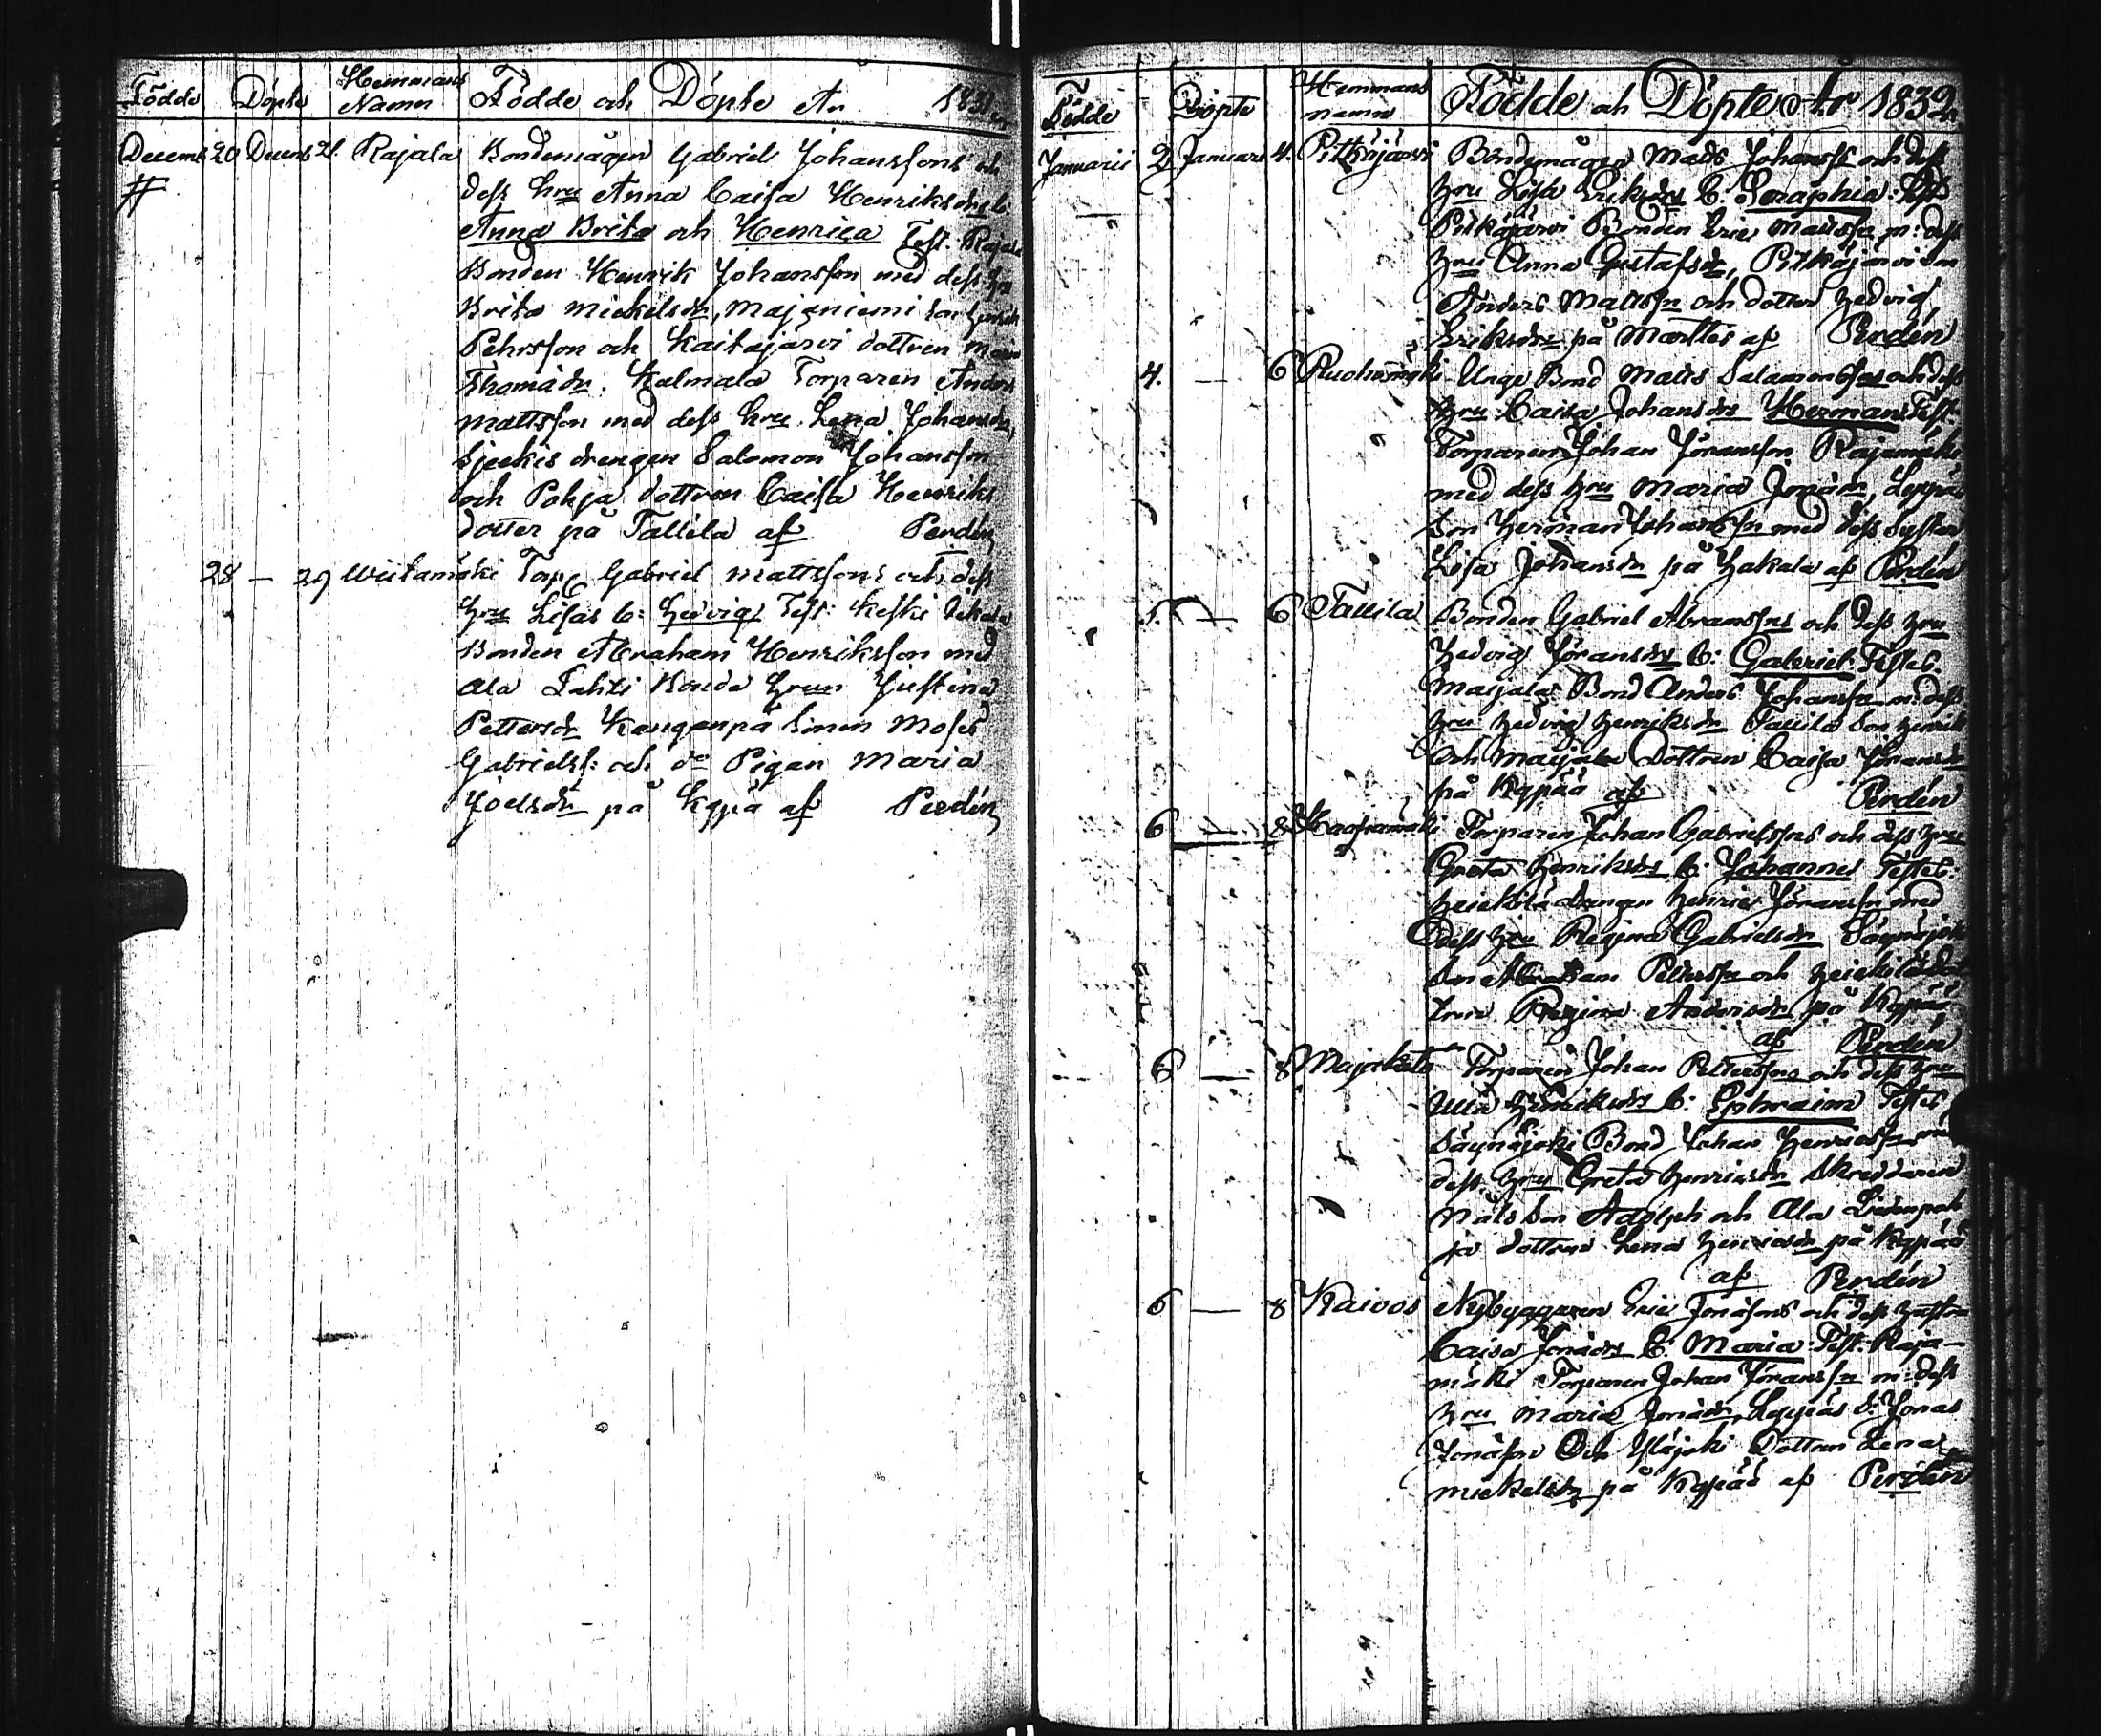 Födde Döpte Hemmans Namn Födde och Döpte År 1831
Decemb 20 Decemb 21. Rajala Bondemågen Gabriel Johanssons och
dess hru Anna Caisa Henriksdrs b.
Anna Brita och Henrica Test. Rajala
Bonden Henrik Johansson med dess hru
Brita Mickelsdr, Majaniemi son Henrik
Pehrsson och Kaitajärvi dottren Maria
Thomädr. Kalmala Torparen Anders
Mattsson med dess hru Lena Johansdr,
drengen Salomon Johansson
och Pohja dottren Caisa Henriks
dotter på Tallila af Perdén
28 — 29 Wiitamäki Torp. Gabriel Mattssons och dess
hru Lisas b: Hedvig Test: Keski
Bonden Abraham Henriksson med
Ala Lahti Bonde hrun Justina
Pettersdr Kangenpä Sonen Moses
Gabrielss: och do Pigan Maria
Joelsdr på Kypä af Perdén
Födde Döpte Hemmans namn Födde och Döpte År 1832
Januarii 2 Januari 4. Pitkäjärvi Bondemågen Mads Johanss och dess
hru Lisa Eriksdrs B. Seraphia. Test
Pitkäjärvi Bonden Eric Mattss m: dess
hru Anna Gustafsdr, Pitkäjärvi son
Anders Mattssn och dotter Hedvig
Eriksdr på Marttis af Perdén
4. — 6 Ruohomäki Unge Bond Matts Salamonssns och dess
hru Caisa Johansdrs Hermans Test.
Torparen Johan Jöransson Rajamäki
med dess hru Maria Jonädr, Leppäs
Son Herman Johanssn med dess Syster
Lisa Johansdr på Hakala af Perdén
5. — 6 Tallila Bonden Gabriel Abramssns och dess hru
Hedvig Jöransdrs b: Gabriel. Testes.
Maijalas Bond Anders Johanssn m: dess
hru Hedvig Henriksdr Tallila Son Henrik
och Maijalas Dottren Caisa Jöransdr
på Kypää af Perdén
6 — 8 Torparen Johan Gabrielssns och dess hru
Greta Henriksdrs b: Johannes Testes.
Heickilä drengen Henric Jöranssn med
dess hru Regina Gabrielsdr Säynäjoki
Son Abraham Petterssn och Heickilä dot
tren Regina Andersdr på Kypää
af Perdén
6 — 8 Majakoto Torparen Johan Petterssns och dess hru
Ulla Henriksdrs b: Ephraim Testes
Säynäjoki Bond Johan Henricssn med
dess hru Greta Henricsdr Skreddaren
Näls son Adolph och Ala Lidenpoh
ja dottren Lena Henricsdr på Kypää
af Perdén
6 — 8 Kaivos Nybyggaren Eric Jonässns och dess hustro
Caisa Jonädrs B: Maria. Test: Raja-
mäki Torparen Johan Jöranssn m: dess
hru Maria Jonädr, Leppäs S: Jonas
Jonässn Och Yläjoki Dottren Lena
Mickelsdr på Kypää af Perdén